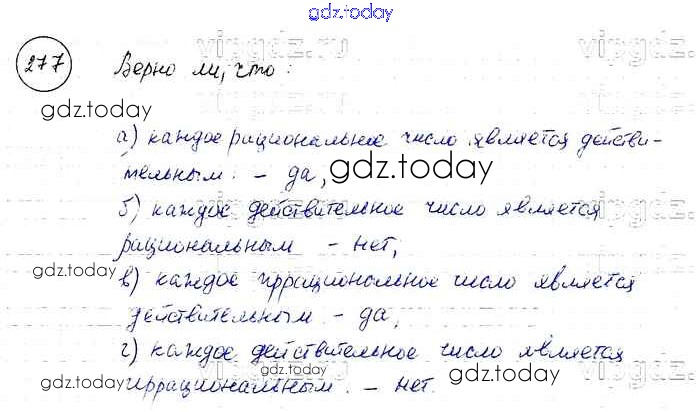 gdz.today
vipgdz.ru
277 Верно ли, что:
gdz.today
а) каждое рациональное число является действи-
тельным. - да,
gdz.today
vipgdz.ru
б) каждое действительное число является
рациональным - нет,
gdz.today
в) каждое иррациональное число является
действительным. - да,
gdz.today
г) каждое действительное число является
иррациональным. - нет.
gdz.today
vipgdz.ru